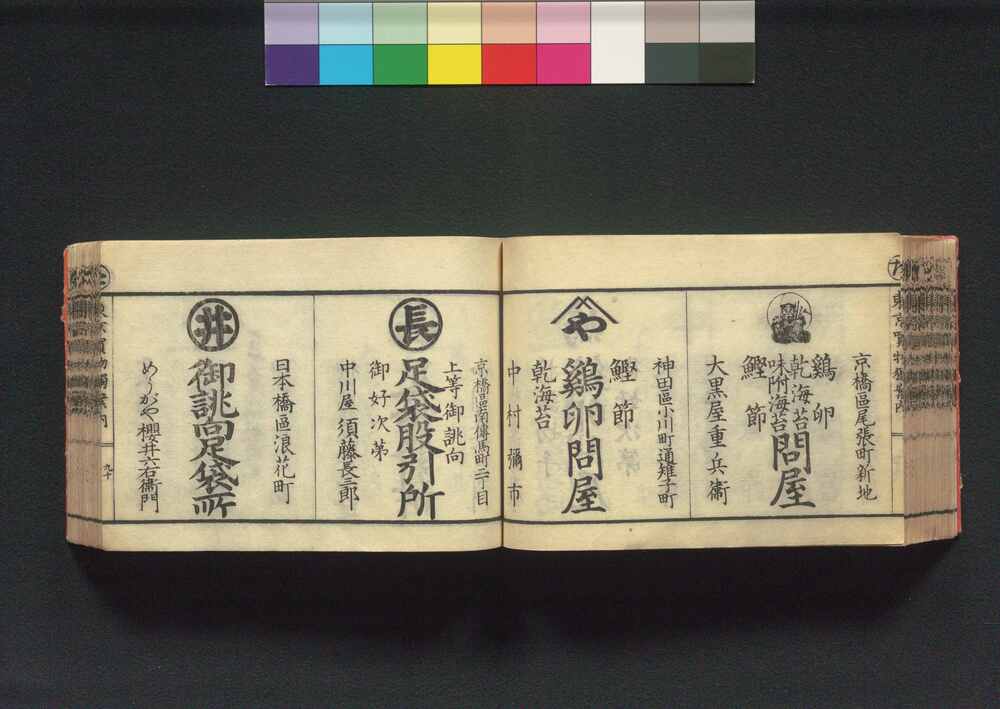 京橋區尾張町新地
鷄卵
乾海苔
味附海苔
鰹節
問屋
大黒屋重兵衞
神田區小川町通雉子町
鰹節
や
鷄卵問屋
乾海苔
中村彌市
京橋區南傳馬町二丁目
上等御誂向
長
足袋股引所
御好次第
中川屋須藤長三郎
日本橋區浪花町
井
御誂向足袋所
めうがや櫻井六右衞門
九十